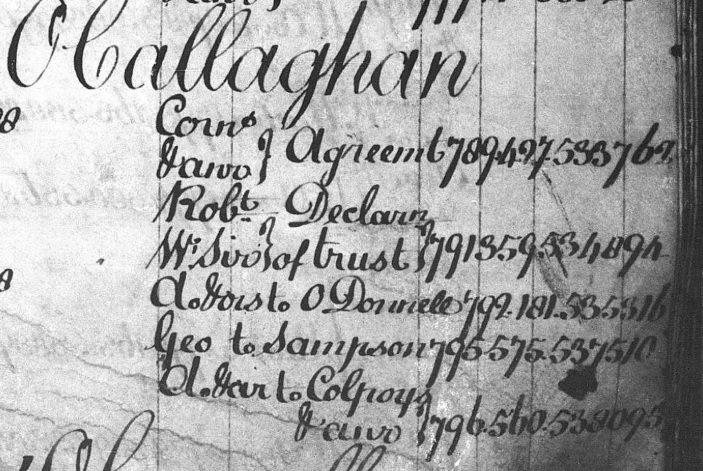 O'Callaghan
Corns
& awo } Agreemt 789.427.533762
Robt Declarn
Wm Sir } of trust } 791.359.534894
O Donnell 792.181.535316
Geo to Sampson 795.575.537510
to Colpoys
& awo } 796.560.538095